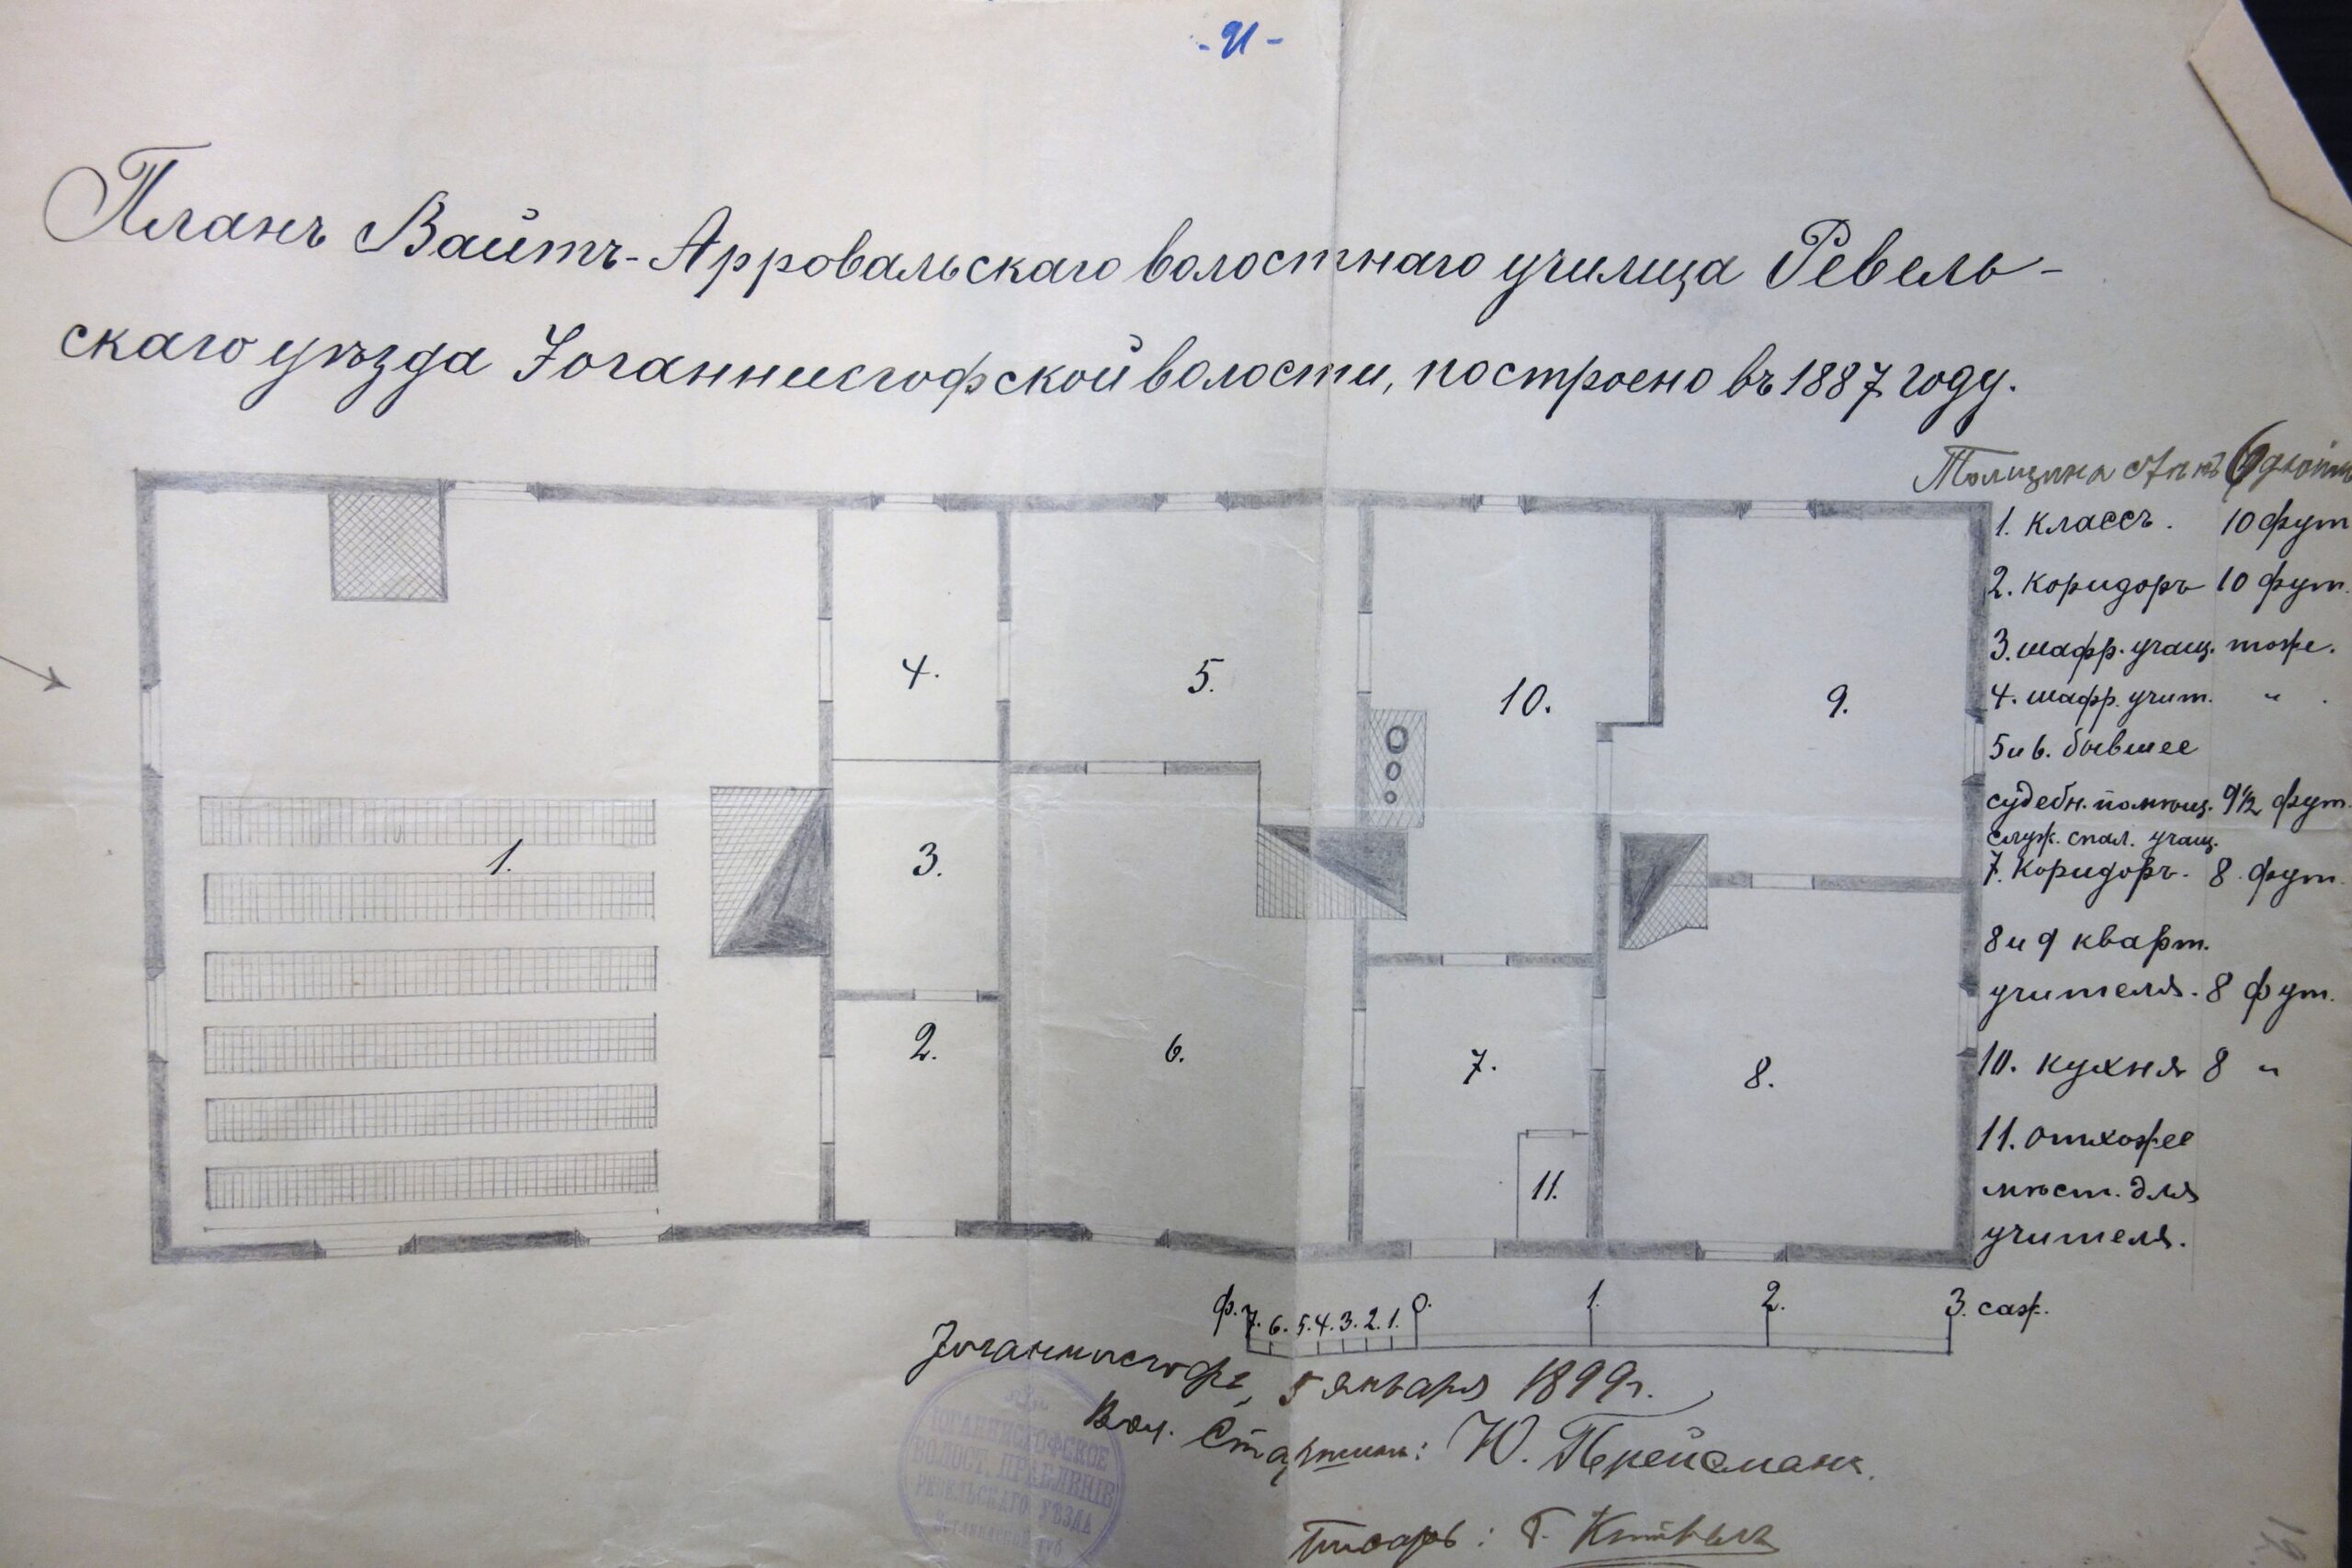 - 91 -
Планъ Вайтъ-Арровальскаго волостнаго училища Ревель-
скаго уѣзда Іоганнисгофской волости, построено въ 1887 году.
Толщина стѣнъ 6 дюйм
1. классъ. 10 фут
2. коридоръ 10 фут.
3. шафр. учащ. тоже.
4. шафр. учит. "
5 и 6. бывшее
судебн. помѣщ. 9 1/2 фут.
служ. спал. учащ.
7. Коридоръ. 8 фут.
8 и 9 кварт.
учителя. 8 фут.
10. кухня 8 "
11. отхожее
мѣст. для
учителя.
4.
5.
10.
9.
1.
3.
2.
6.
7.
8.
11.
ф. 7. 6. 5. 4. 3. 2. 1. 0. 1. 2. 3. саж.
Іоганнисгофъ, 5 января 1899 г.
Вол. Старшина: Ю. Прейсманъ.
Писарь: Г.
ІОГАННИСГОФСКОЕ
ВОЛОСТ. ПРАВЛЕНІЕ
РЕВЕЛЬСКАГО УѢЗДА
Эстляндской губ